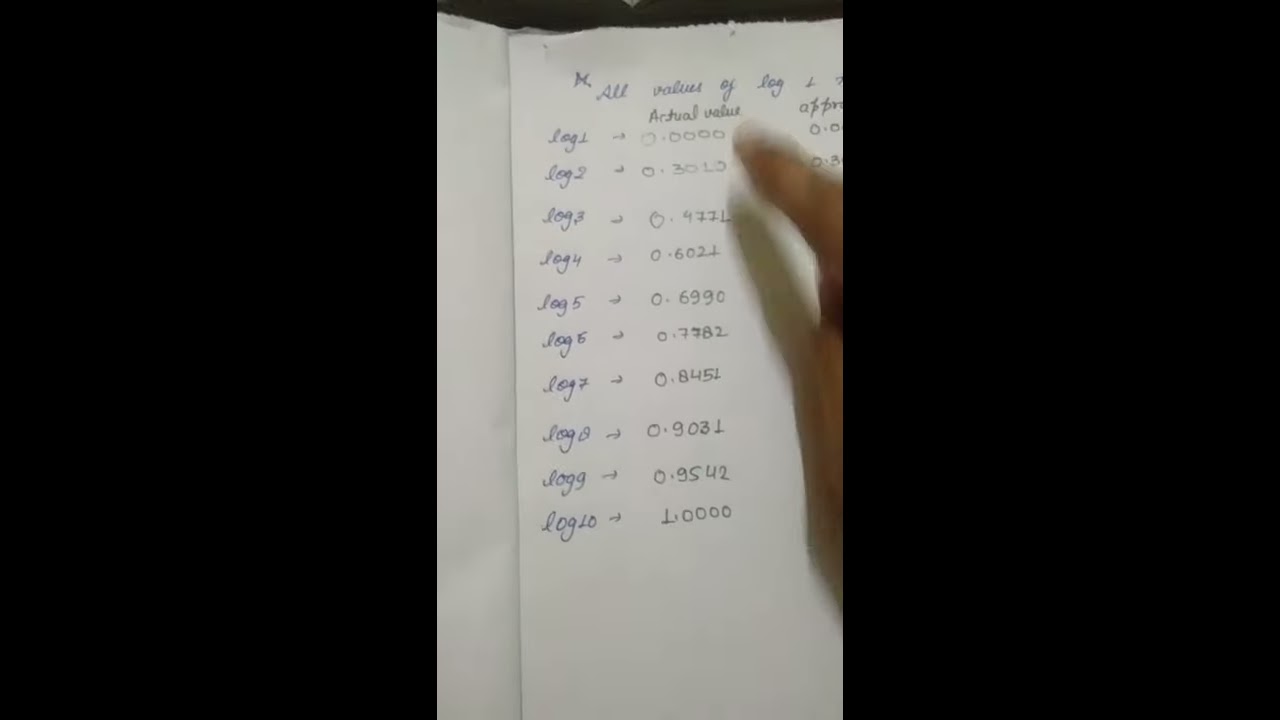 All values of log 1
Actual value appro
log1 → 0.0000 0.0
log2 → 0.3010 0.3
log3 → 0.4771
log4 → 0.6021
log5 → 0.6990
log6 → 0.7782
log7 → 0.8451
log8 → 0.9031
log9 → 0.9542
log10 → 1.0000